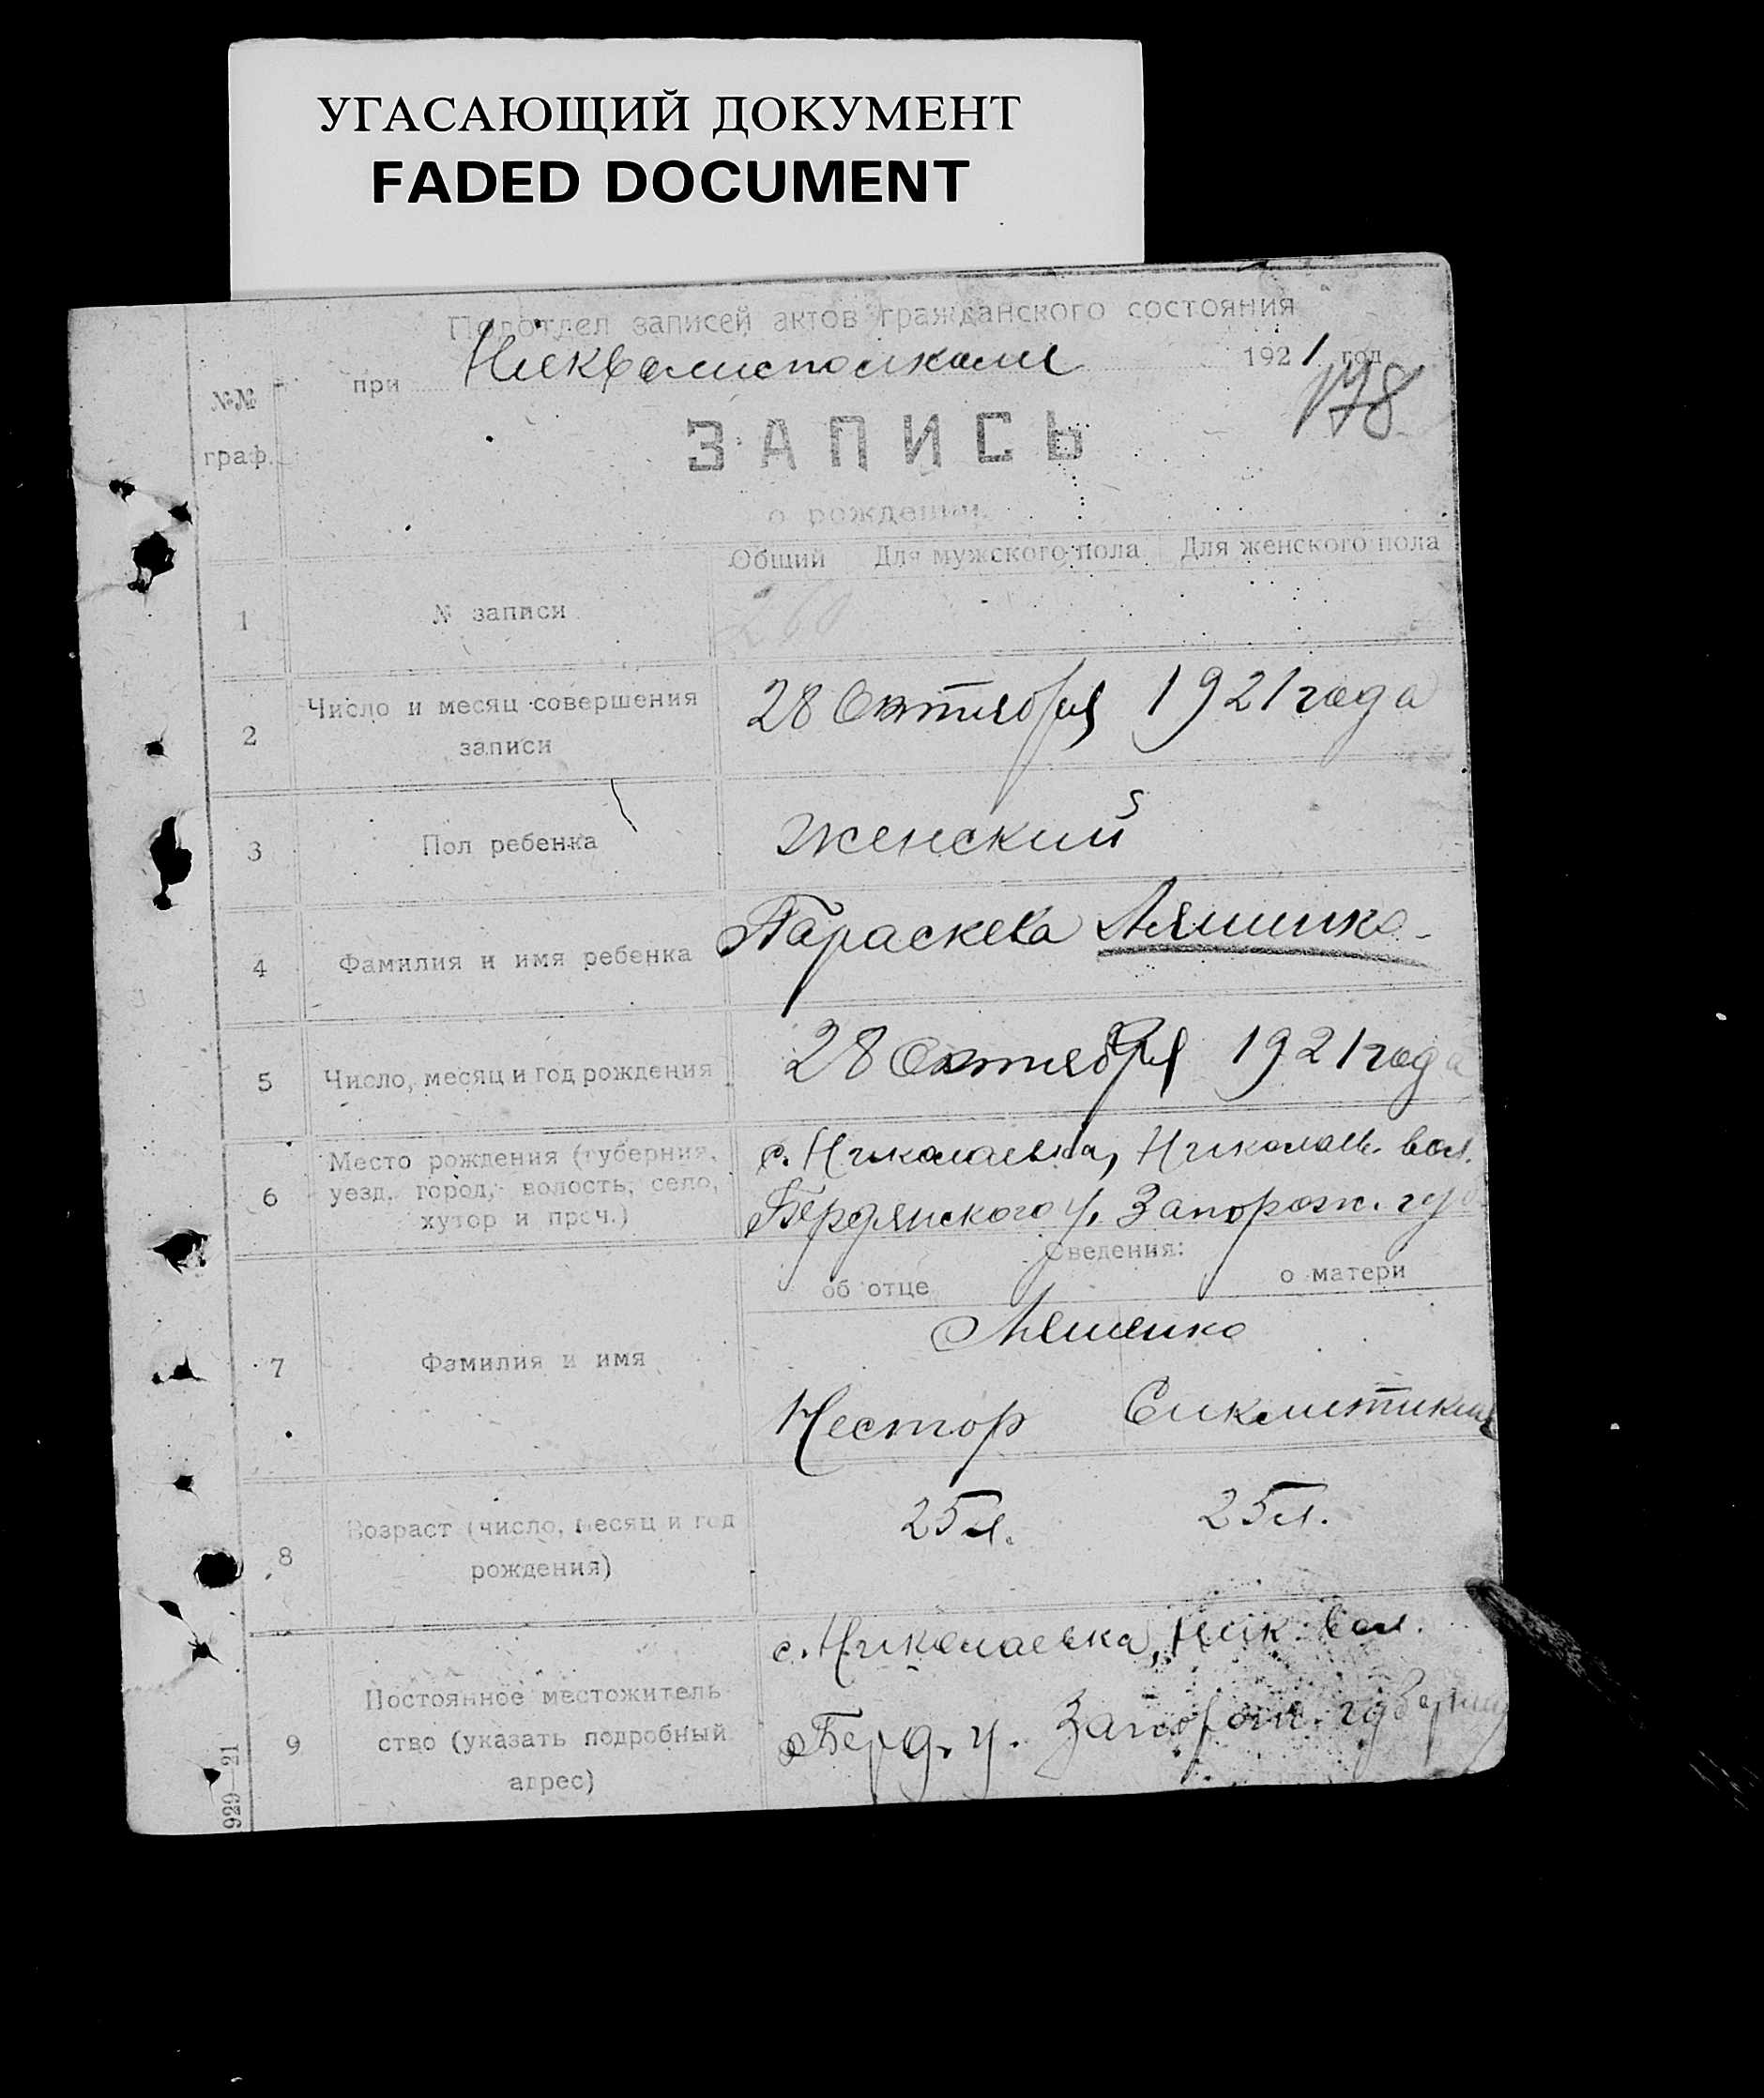 УГАСАЮЩИЙ ДОКУМЕНТ
FADED DOCUMENT
Подотдел записей актов гражданского состояния
при 1921 год
178
№№
граф.
ЗАПИСЬ
о рождении.
Общий Для мужского пола Для женского пола
1 № записи 260
2 Число и месяц совершения
записи
28 Октября 1921 года
3 Пол ребенка женский
4 Фамилия и имя ребенка Параскева Ляшенко
5 Число, месяц и год рождения 28 Октября 1921 года
6 Место рождения (губерния,
уезд, город, волость, село,
хутор и проч.)
с. Николаевка, Николаев. вол.
Бердянского у. Запорож. губ
Сведения:
об отце о матери
7 Фамилия и имя
Ляшенко
Нестор
8 Возраст (число, месяц и год
рождения)
25 л. 25 л.
9 Постоянное местожитель
ство (указать подробный
адрес)
с. Николаевка, Ник. вол.
Берд. у. Запорож. губернии
929—21